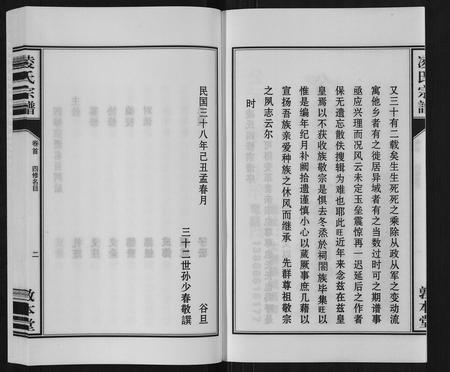 凌氏宗譜
又三十有二载矣生生死死之乘除从政从军之变动流
寓他乡者有之徙居异域者有之当数过时可之期谱事
亟应兴理而况风云未定玉垒震惊再一迟延后之作者
保无遗忘散佚搜辑为难也耶此旺近年来念兹在兹皇
皇焉以不获收族敬宗是惧去冬烝於祠阁族毕集旺以
惟是编年纪月补阙拾遗谨慎小心以蒇厥事庶几藉以
宣扬吾族亲爱种族之休风而继承 先群尊祖敬宗
之夙志云尔
时
敦本堂
民国三十八年己丑孟春月 谷旦
三十二世孙少春敬譔
凌氏宗譜
卷首 四修名目
二
敦本堂